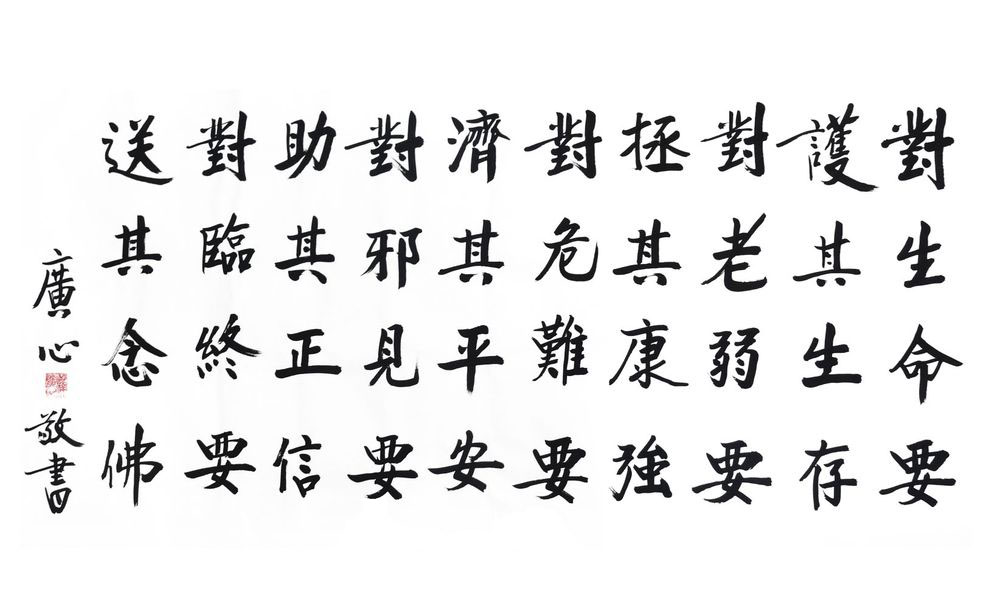 對生命要
護其生存
對老弱要
拯其康強
對危難要
濟其平安
對邪見要
助其正信
對臨終要
送其念佛
廣心敬書